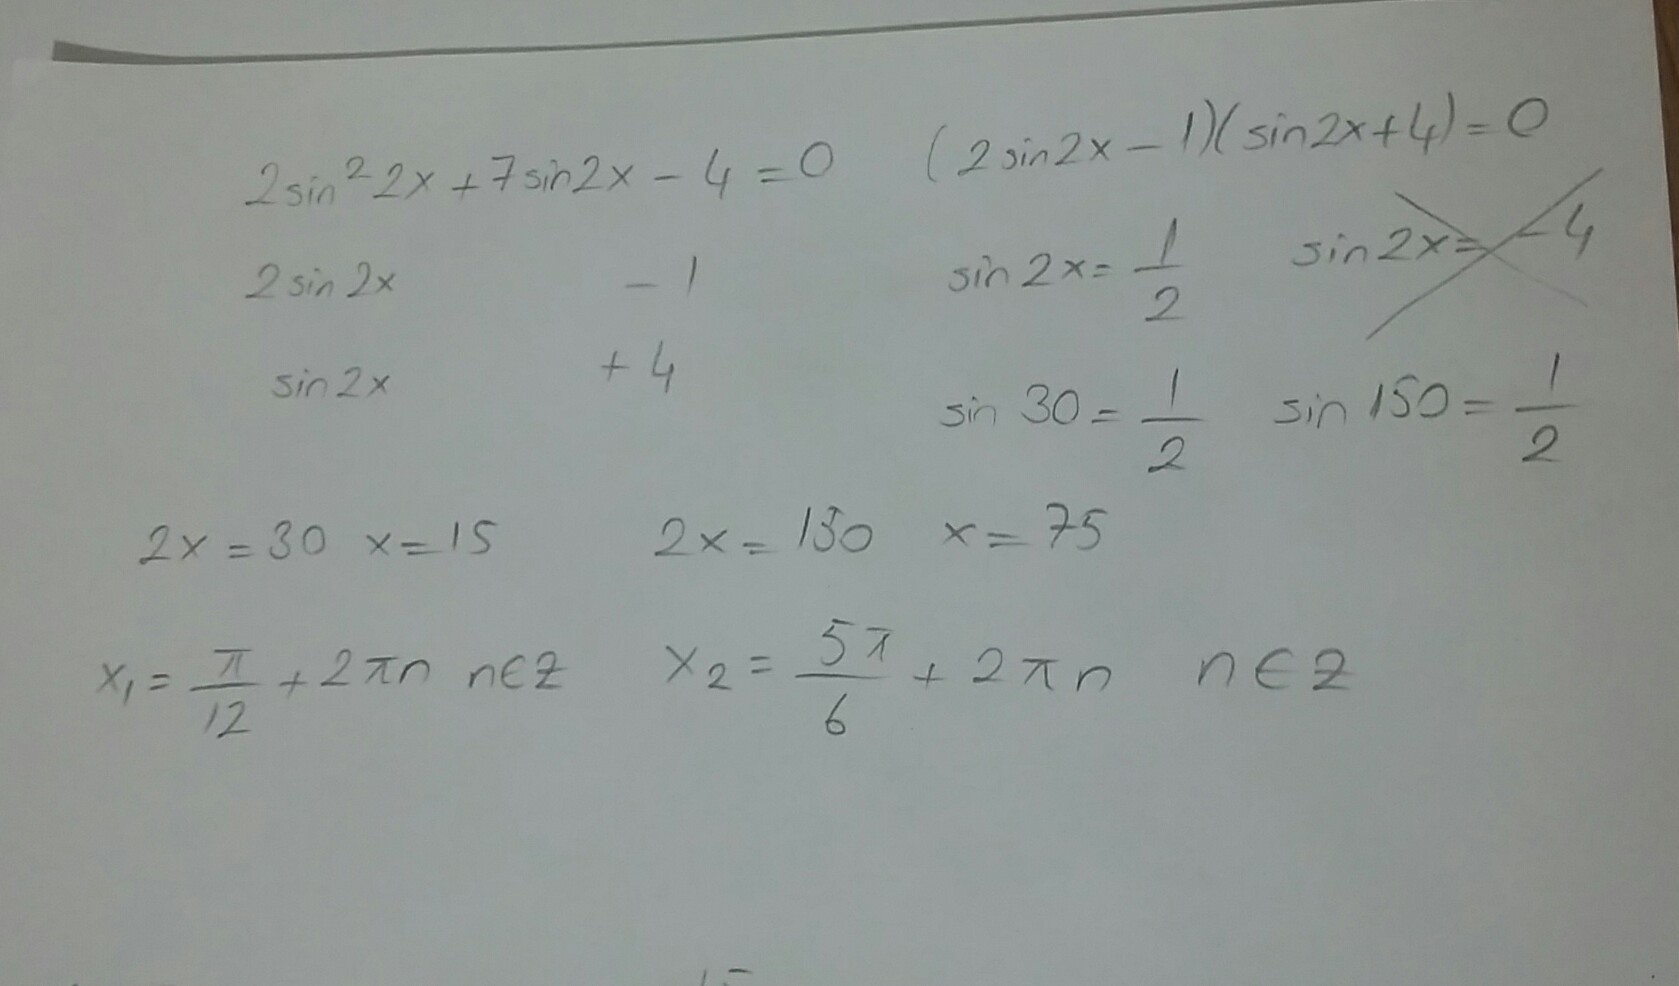 2sin²2x+7sin2x-4=0 (2sin2x-1)(sin2x+4)=0
2sin2x -1 sin2x=1/2 sin2x=-4
sin2x +4 sin30=1/2 sin150=1/2
2x=30 x=15 2x=150 x=75
x₁=π/12+2πn n∈Z x₂=5π/6+2πn n∈Z